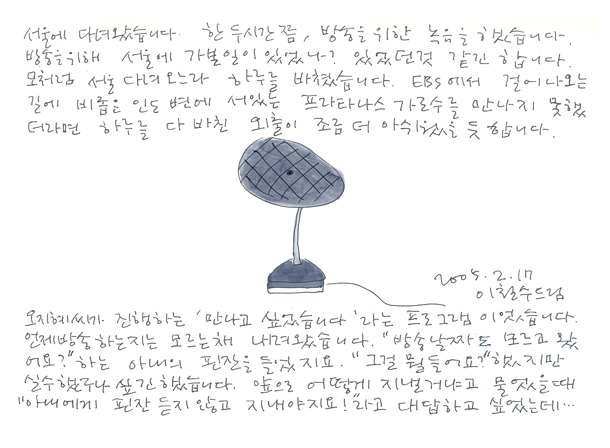 서울에 다녀왔습니다. 한 두시간쯤, 방송을 위한 녹음을 했습니다.
방송을위해 서울에 가본일이 있었나? 있었던것 같긴 합니다.
모처럼 서울 다녀오느라 하루를 바쳤습니다. EBS에서 걸어나오는
길에 비좁은 인도변에 서있는 프라타나스 가로수를 만나지 못했
더라면 하루를 다 바친 외출이 조금 더 아쉬웠을 듯 합니다.
2005. 2. 17
이철수드림
오지혜씨가 진행하는 '만나고 싶었습니다'라는 프로그램 이었습니다.
언제방송하는지는 모르는채 내려왔습니다. "방송날짜도 모르고 왔
어요?"하는 아내의 핀잔을 들었지요. "그걸 뭘들어요?"했지만
실수했구나 생각했습니다. 앞으로 어떻게 지낼거냐고 물었을때
"아내에게 핀잔 듣지않고 지내야지요!"라고 대답하고 싶었는데…